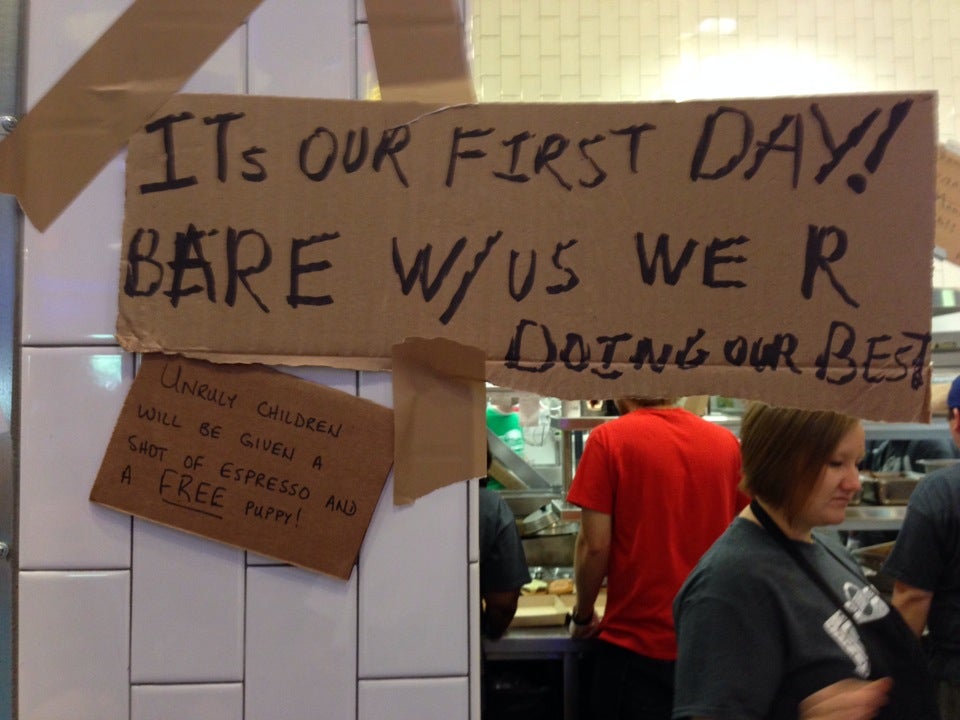 ITs OUR FIRST DAY!
BARE W/US WE R
DOING OUR BEST
UNRULY CHILDREN
WILL BE GIVEN A
SHOT OF ESPRESSO AND
A FREE PUPPY!